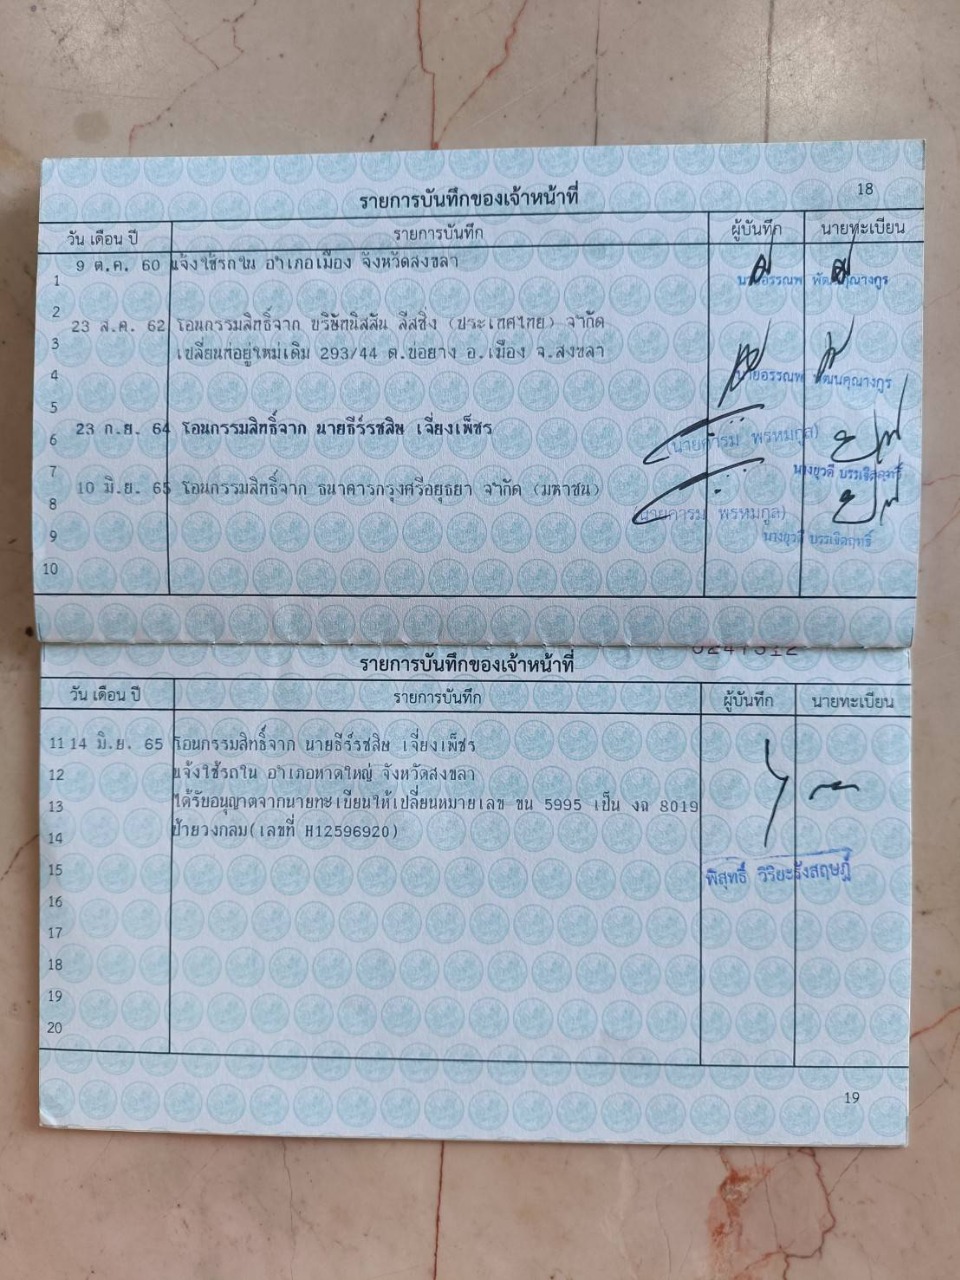 18
รายการบันทึกของเจ้าหน้าที่
วัน เดือน ปี รายการบันทึก ผู้บันทึก นายทะเบียน
1 9 ต.ค. 60 แจ้งใช้รถใน อำเภอเมือง จังหวัดสงขลา
2
3 23 ส.ค. 62 โอนกรรมสิทธิ์จาก บริษัทนิสสัน ลีสซิ่ง (ประเทศไทย) จำกัด
เปลี่ยนที่อยู่ใหม่เดิม 293/44 ต.บ่อยาง อ.เมือง จ.สงขลา
4
5
6 23 ก.ย. 64 โอนกรรมสิทธิ์จาก นายธีร์รชสิษ เจี่ยงเพ็ชร
(นายคารม พรหมกูล)
7
8 10 มิ.ย. 65 โอนกรรมสิทธิ์จาก ธนาคารกรุงศรีอยุธยา จำกัด (มหาชน)
(นายคารม พรหมกูล)
9
10
รายการบันทึกของเจ้าหน้าที่
วัน เดือน ปี รายการบันทึก ผู้บันทึก นายทะเบียน
11 14 มิ.ย. 65 โอนกรรมสิทธิ์จาก นายธีร์รชสิษ เจี่ยงเพ็ชร
12 แจ้งใช้รถใน อำเภอหาดใหญ่ จังหวัดสงขลา
13 ได้รับอนุญาตจากนายทะเบียนให้เปลี่ยนหมายเลข ขน 5995 เป็น งฉ 8019
14 ป้ายวงกลม(เลขที่ H12596920)
15
พิสุทธิ์ วิริยะรังสฤษฎ์
16
17
18
19
20
19